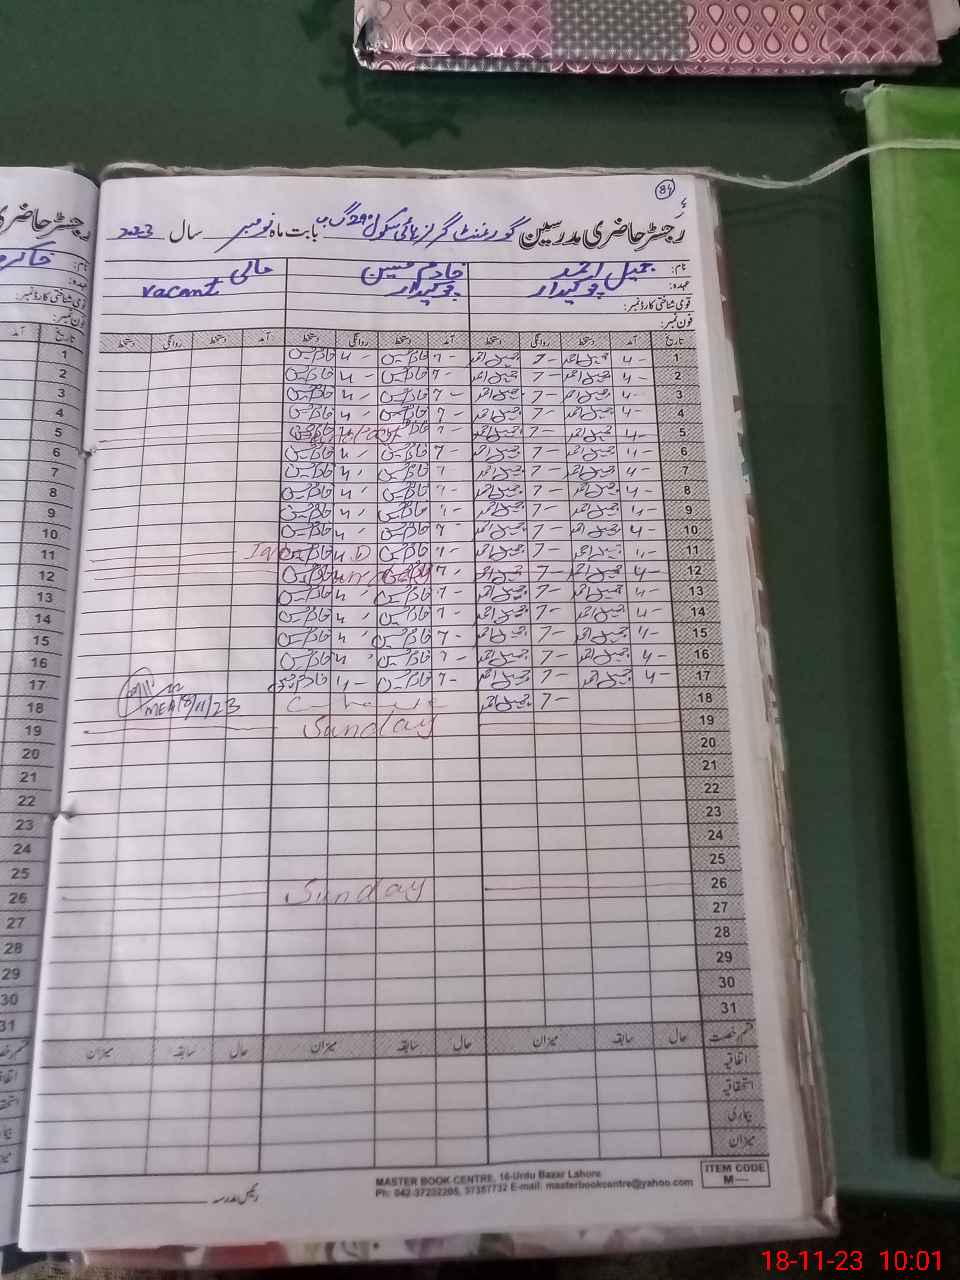 84
رجسٹر حاضری مدرسین گورنمنٹ گرلز ہائی سکول 290 گ ب بابت ماہ نومبر سال 2023
نام: جمیل احمد خادم حسین خالی
عہدہ: چوکیدار چوکیدار vacant
قومی شناختی کارڈ نمبر:
فون نمبر:
تاریخ آمد دستخط روانگی دستخط آمد دستخط روانگی دستخط آمد دستخط روانگی دستخط
1 4- جمیل احمد 7- جمیل احمد 7- خادم حسین 4-  خادم حسین
2 4- جمیل احمد 7- جمیل احمد 7- خادم حسین 4- خادم حسین
3 4- جمیل احمد 7- جمیل احمد 7- خادم حسین 4- خادم حسین
4 4- جمیل احمد 7- جمیل احمد 7- خادم حسین 4- خادم حسین
5 4- جمیل احمد 7- جمیل احمد 7- خادم حسین 4- خادم حسین Sunday
6 4- جمیل احمد 7- جمیل احمد 7- خادم حسین 4- خادم حسین
7 4- جمیل احمد 7- جمیل احمد 7- خادم حسین 4- خادم حسین
8 4- جمیل احمد 7- جمیل احمد 7- خادم حسین 4- خادم حسین
9 4- جمیل احمد 7- جمیل احمد 7- خادم حسین 4- خادم حسین
10 4- جمیل احمد 7- جمیل احمد 7- خادم حسین 4- خادم حسین
11 4- جمیل احمد 7- جمیل احمد 7- خادم حسین 4- خادم حسین
12 4- جمیل احمد 7- جمیل احمد 7- خادم حسین 4- خادم حسین Sunday
13 4- جمیل احمد 7- جمیل احمد 7- خادم حسین 4- خادم حسین
14 4- جمیل احمد 7- جمیل احمد 7- خادم حسین 4- خادم حسین
15 4- جمیل احمد 7- جمیل احمد 7- خادم حسین 4- خادم حسین
16 4- جمیل احمد 7- جمیل احمد 7- خادم حسین 4- خادم حسین
17 4- جمیل احمد 7- جمیل احمد 7- خادم حسین 4- خادم حسین
18 7- جمیل احمد MEA 18/11/23
19 Sunday
20
21
22
23
24
25
26 Sunday
27
28
29
30
31
قسم رخصت حال سابقہ میزان حال سابقہ میزان حال سابقہ میزان
اتفاقیہ
استحقاقیہ
بیماری
میزان
ITEM CODE
M—
MASTER BOOK CENTRE, 16-Urdu Bazar Lahore
Ph: 042-37232205, 37357732 E-mail: masterbookcentre@yahoo.com
رئیس مدرسہ
18-11-23 10:01